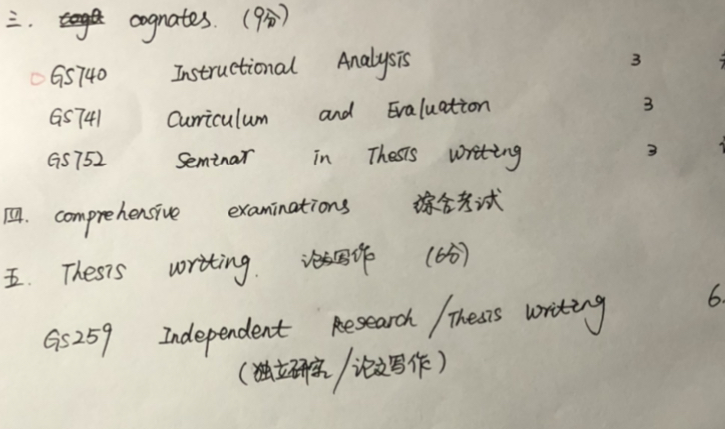 三. cognates. (9分)
GS740 Instructional Analysis 3
GS741 Curriculum and Evaluation 3
GS752 Seminar in Thesis Writing 3
四. comprehensive examinations 综合考试
五. Thesis writing. 论文写作 (6分)
GS259 Independent Research/Thesis Writing 6.
(独立研究/论文写作)